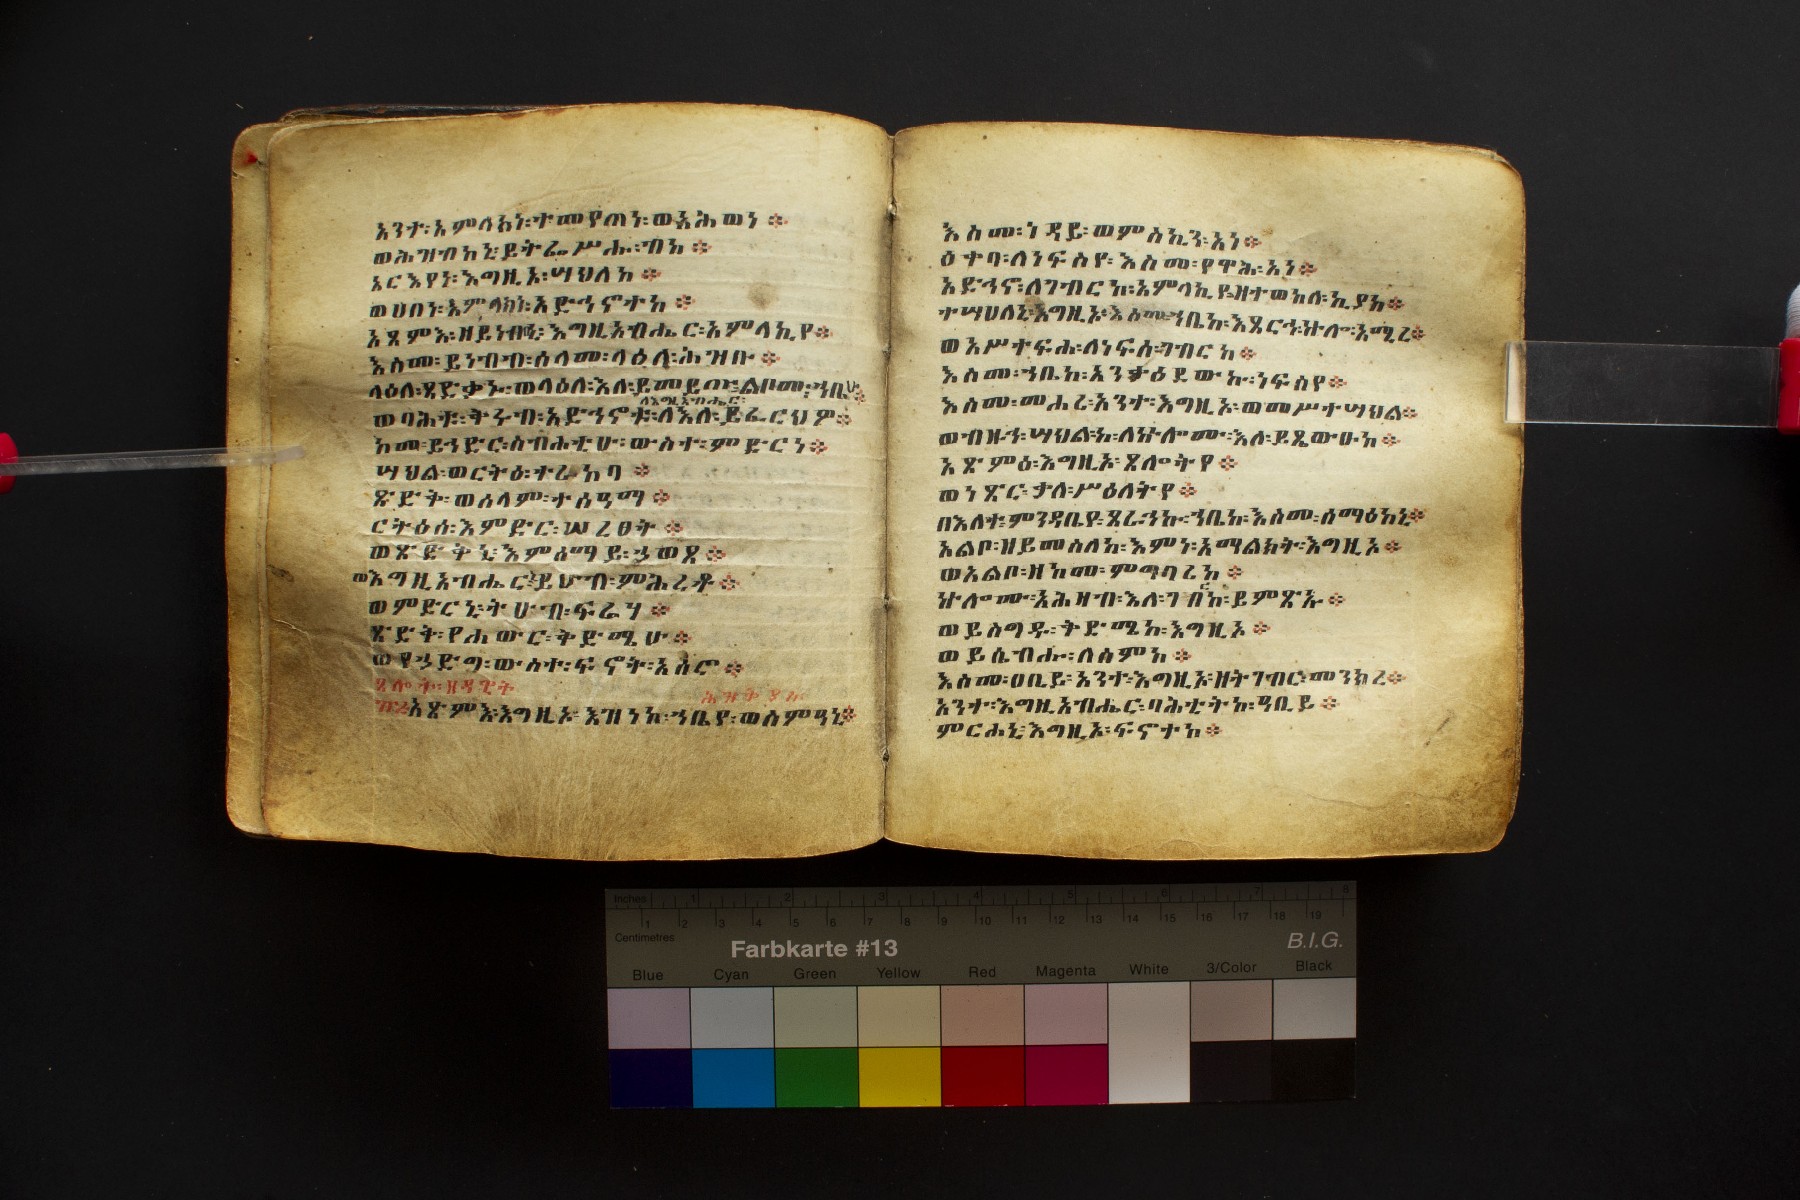 አንተ፡አምላክነ፡ተመየጠነ፡ወአሕወነ፨
ወሕዝብከኒ፡ይትፌሥሑ፡ብከ፨
አርእየነ፡እግዚኦ፡ሣህለከ፨
ወሀበነ፡አምላክነ፡አድኅኖተከ፨
አጸምእ፡ዘይነብብ፡እግዚአብሔር፡አምላኪየ፨
እስመ፡ይነብብ፡ሰላመ፡ላዕለ፡ሕዝቡ፨
ላዕለ፡ጻድቃኑ፡ወላዕለ፡እለ፡ይመይጡ፡ልቦሙ፡ኀቤሁ፨
ለእግዚአብሔር፡
ወባሕቱ፡ቅሩብ፡አድኅኖቱ፡ለእለ፡ይፈርህዎ፨
ከመ፡ይኅድር፡ስብሐቲሁ፡ውስተ፡ምድርነ፨
ሣህል፡ወርትዕ፡ተራከባ፨
ጽድቅ፡ወሰላም፡ተሰዓማ፨
ርትዕሰ፡እምድር፡ሠረፀት፨
ወጽድቅኒ፡እምሰማይ፡ኃወጸ፨
ወእግዚአብሔርኒ፡ይሁብ፡ምሕረቶ፨
ወምድርኒ፡ትሁብ፡ፍሬሃ፨
ጽድቅ፡የሐውር፡ቅድሜሁ፨
ወየኃድግ፡ውስተ፡ፍኖት፡አሰሮ፨
ጸሎት፡ዘዳዊት
አጽምእ፡እግዚኦ፡እዝነከ፡ኀቤየ፡ወስምዓኒ፨
እስመ፡ነዳይ፡ወምስኪን፡አነ፨
ዕቀባ፡ለነፍስየ፡እስመ፡የዋህ፡አነ፨
አድኅኖ፡ለገብርከ፡አምላኪየ፡ዘተወከለ፡ኪያከ፨
ተሣሀለኒ፡እግዚኦ፡እስመ፡ኀቤከ፡እጼርኅ፡ኵሎ፡አሚረ፨
ወአሥተፍሐ፡ለነፍሰ፡ገብርከ፨
እስመ፡ኀቤከ፡አንቃዕደውኩ፡ነፍስየ፨
እስመ፡መሐሪ፡አንተ፡እግዚኦ፡ወመሥተሣህል፨
ወብዙኅ፡ሣህልከ፡ለኵሎሙ፡እለ፡ይጼውዑከ፨
አጽምዕ፡እግዚኦ፡ጸሎትየ፨
ወነጽር፡ቃለ፡ሥዕለትየ፨
በዕለተ፡ምንዳቤየ፡ጸራኅኩ፡ኀቤከ፡እስመ፡ሰማዕከኒ፨
አልቦ፡ዘይመስለከ፡እምነ፡አማልክት፡እግዚኦ፨
ወአልቦ፡ዘከመ፡ምግባሪከ፨
ኵሎሙ፡አሕዛብ፡እለ፡ገበርከ፡ይምጽኡ፨
ወይስግዱ፡ቅድሜከ፡እግዚኦ፨
ወይሴብሑ፡ለስምከ፨
እስመ፡ዐቢይ፡አንተ፡እግዚኦ፡ዘትገብር፡መንክረ፨
አንተ፡እግዚአብሔር፡ባሕቲትከ፡ዓቢይ፨
ምርሐኒ፡እግዚኦ፡ፍኖተከ፨
Inches 1 2 3 4 5 6 7 8
1 2 3 4 5 6 7 8 9 10 11 12 13 14 15 16 17 18 19
Centimetres
Farbkarte #13
B.I.G.
Blue Cyan Green Yellow Red Magenta White 3/Color Black